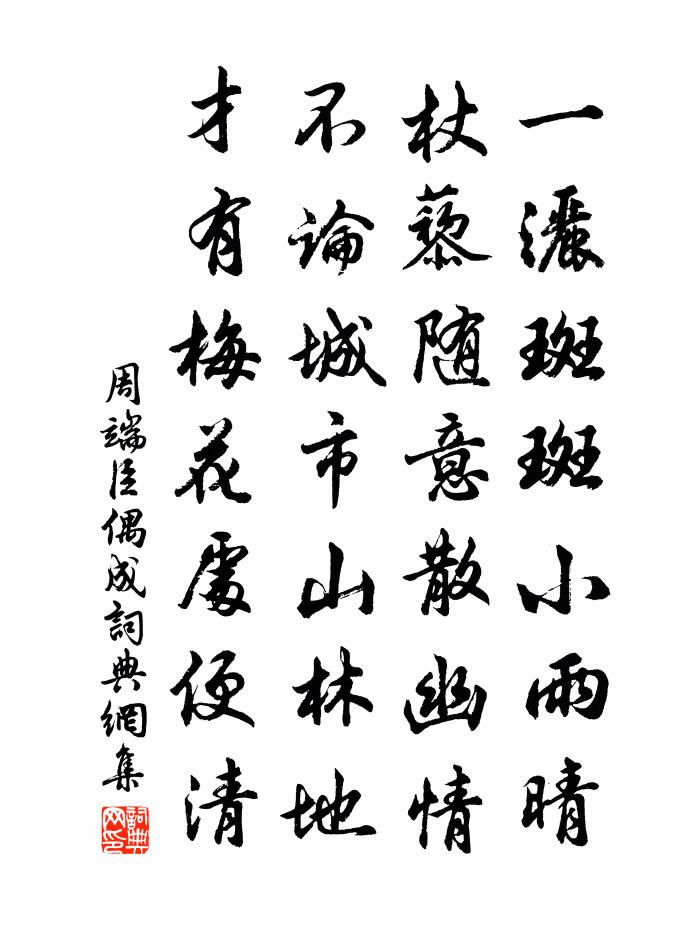 一灑斑斑小雨晴
杖藜随意散幽情
不論城市山林地
才有梅花處便清
周端臣偶成詞典網集
詞典网印